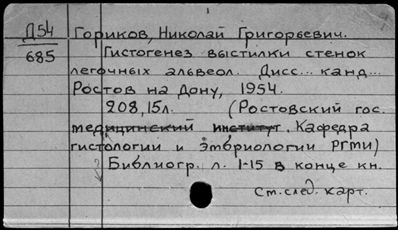 Д54
685
Гориков, Николай Григорьевич.
Гистогенез выстилки стенок
легочных альвеол. Дисс... канд...
Ростов на Дону, 1954.
208,15л. (Ростовский гос.
медицинский институт. Кафедра
гистологии и эмбриологии РГМИ)
Библиогр. л. 1-15 в конце кн.
См. след. карт.